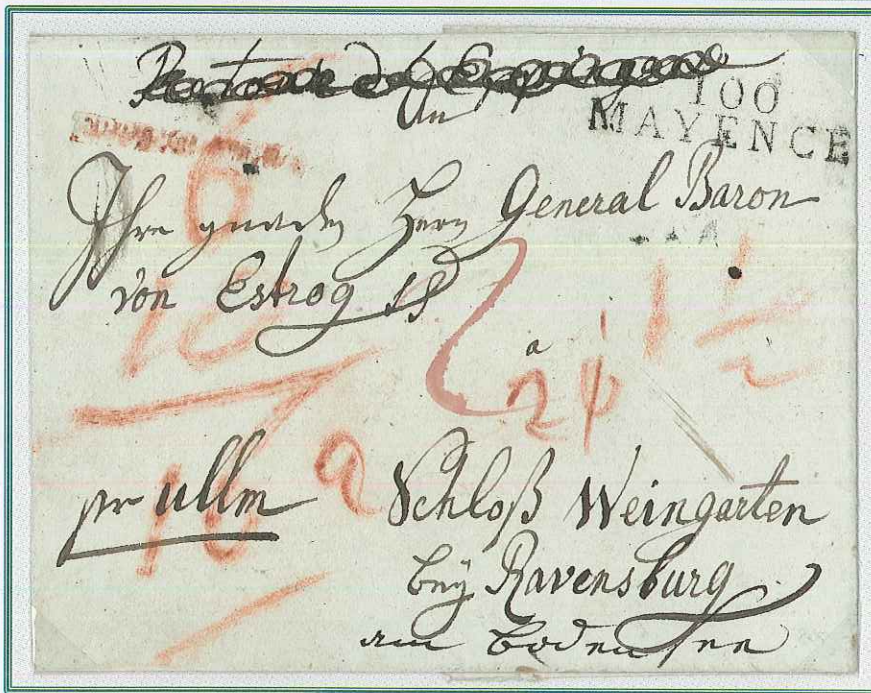 An
100
MAYENCE
Ihro gnaden Herrn General Baron
von Estrog
6
10
16
a
24
1 1/2
pr Ullm
Schloß Weingarten
bey Ravensburg
am bodensee